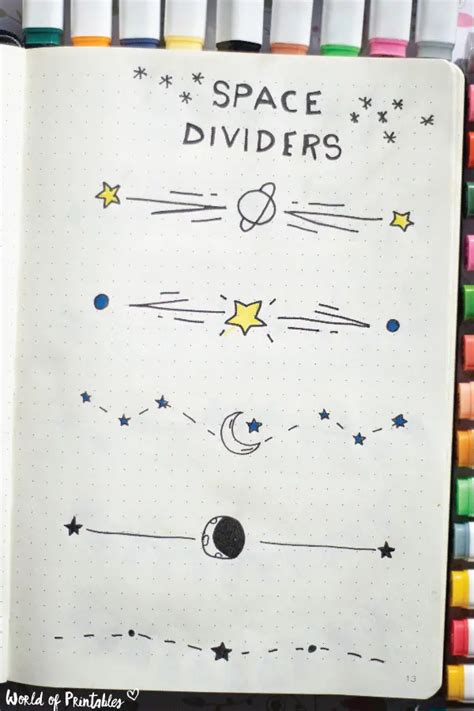 SPACE
DIVIDERS
13
World of Printables